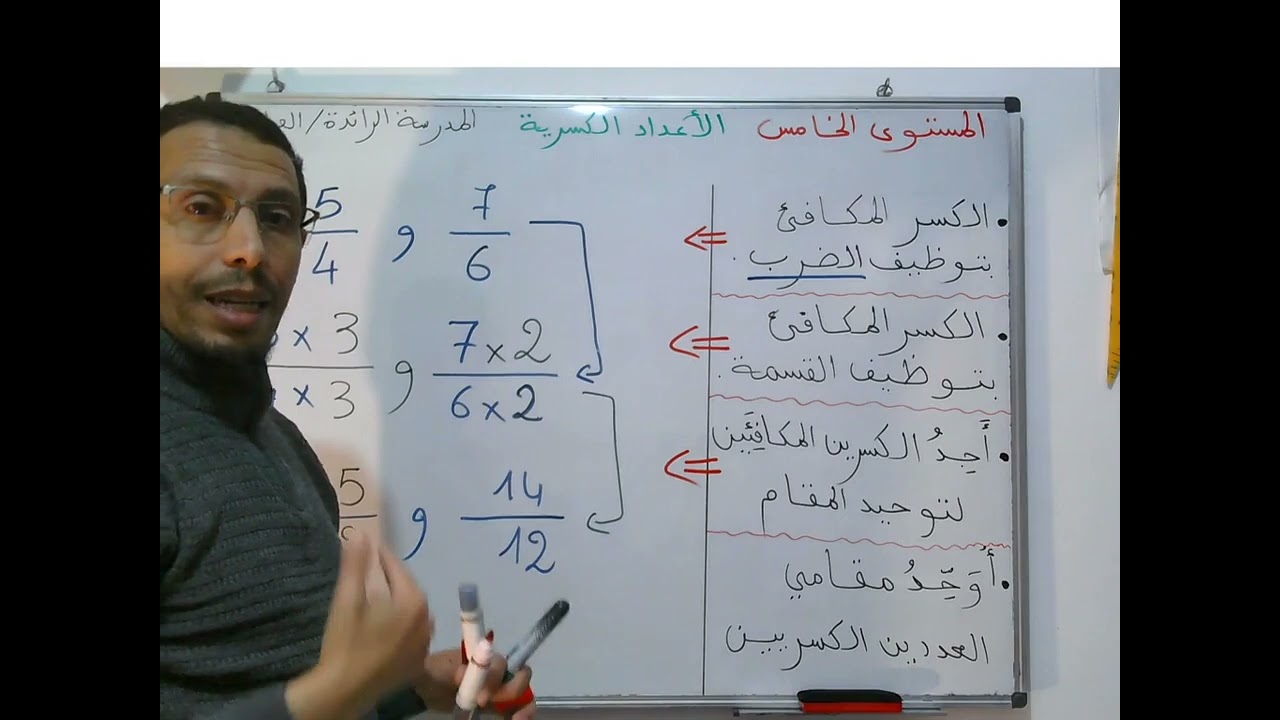 المستوى الخامس الأعداد الكسرية المدرسة الرائدة/
• الكسر المكافئ
بتوظيف الضرب.
• الكسر المكافئ
بتوظيف القسمة.
• أَجِدُ الكسرين المكافِئَين
لتوحيد المقام
• أُوَحِّدُ مقامي
العددين الكسريين
7/6 و 5/4
7×2/6×2 و × 3/× 3
14/12 و 5